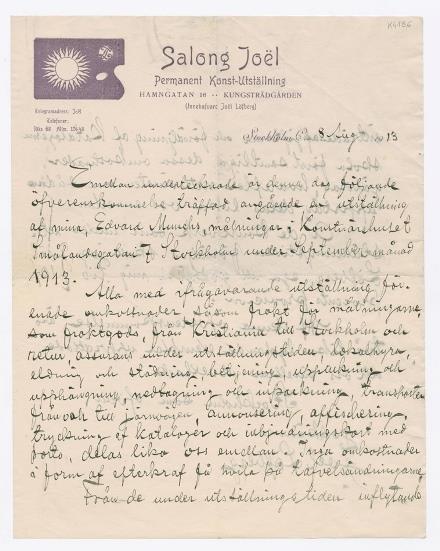 K4196
Salong Joël
Permanent Konst-Utställning
HAMNGATAN 16 ·· KUNGSTRÄDGÅRDEN
(Innehafvare: Joël Löfberg)
Telegramadress: Joël
Telefoner:
Stockholm C. 8 Aug. 13
Emellan undertecknade är denna dag följande
öfverenskommelse träffad angående en utställning
af mina, Edvard Munchs, målningar i Konstnärshuset
Smålandsgatan 7 Stockholm under September månad
1913.
Alla med ifrågavarande utställning för-
enade omkostnader såsom frakt för målningarne,
som fraktgods, från Kristiania till Stockholm och
retur, assurans under utställningstiden lokalhyra,
eldning och städning, betjening, uppackning och
upphängning, nedtagning och inpackning, transporter
från och till järnvägen, annonsering, affischering,
tryckning af kataloger och inbjudningskort med
porto, delas lika oss emellan. Inga omkostnader
i form af efterkraf få hvila på tafvelsändningarne.
Från de under utställningstiden inflytande